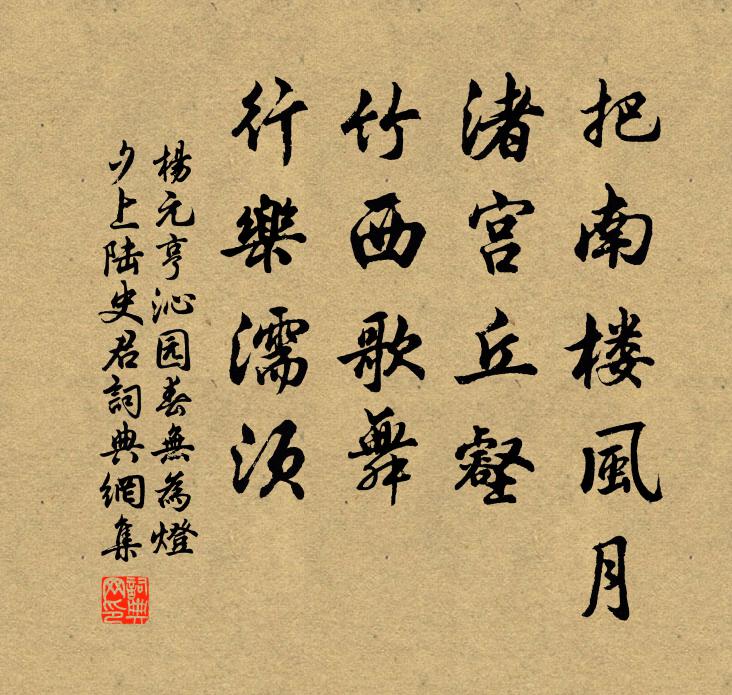 把南楼風月
渚宫丘壑
竹西歌舞
行樂濡须
楊元亨沁园春無為燈
夕上陆史君詞典網集
詞典网印